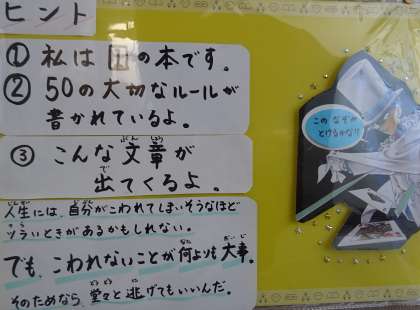 ヒント
① 私は 田 の本です。
② 50の大切なルールが
書かれているよ。
③ こんな文章が
出てくるよ。
人生には、自分がこわれてしまいそうなほど
ツライときがあるかもしれない。
でも、こわれないことが何よりも大事。
そのためなら、堂々と逃げてもいいんだ。
この なぞが
とけるかな!!